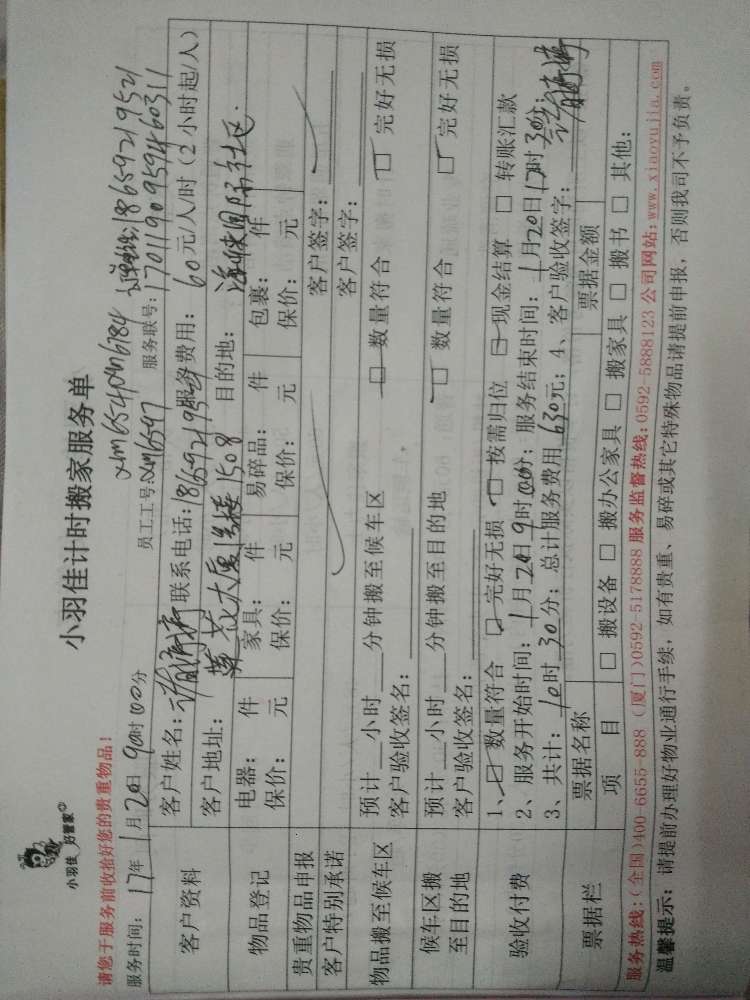 小羽佳 好管家
小羽佳计时搬家服务单
请您于服务前收拾好您的贵重物品！
xm6540 xm6184 18659219521
服务时间：17年1月20日9时00分 员工工号：xm6597 服务联号：17011909594460311
客户资料 客户姓名： 联系电话：18659219521 服务费用：60元/人/时（2小时起/人）
客户地址：莲花大厦 1508 目的地：海峡国际社区.
物品登记 电器： 件 家具： 件 易碎品： 件 包裹： 件
保价： 元 保价： 元 保价： 元 保价： 元
贵重物品申报 客户签字：
客户特别承诺 客户签字：
物品搬至候车区 预计 小时 分钟搬至候车区 □ 数量符合 □ 完好无损
客户验收签名：
候车区搬至目的地 预计 小时 分钟搬至目的地 □ 数量符合 □ 完好无损
客户验收签名：
验收付费 1、□ 数量符合 □ 完好无损 □ 按需归位 □ 现金结算 □ 转账汇款
2、服务开始时间：1月20日9时00分；服务结束时间：1月20日17时30分；
3、共计：10时30分；总计服务费用630元；4、客户验收签字：
票据栏 票据名称 票据金额
项 目 □ 搬设备 □ 搬办公家具 □ 搬家具 □ 搬书 □ 其他：
服务热线：（全国）400-6655-888 （厦门）0592-5178888 服务监督热线：0592-5888123 公司网站：www.xiaoyujia.com
温馨提示：请提前办理好物业通行手续，如有贵重、易碎或其它特殊物品请提前申报，否则我司不予负责。